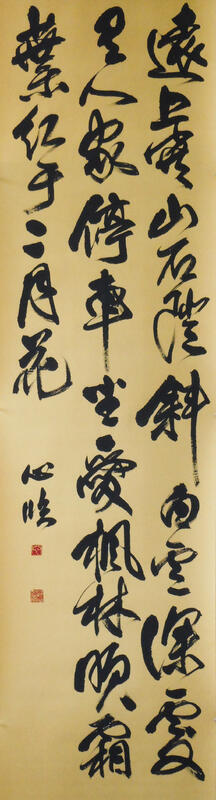 遠上寒山石斜白雲深處
有人家停車坐愛楓林晚霜
葉紅于二月花
心